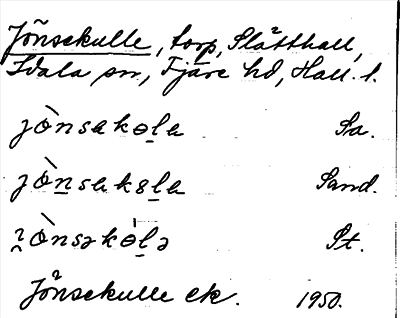 Jönsekulle, torp, Slätthall,
Idala sn, Fjäre hd, Hall. l.
jònsakola Sa.
jònsaksla Sand.
ɿònsəkölə St.
Jönsekulle ek. 1950.